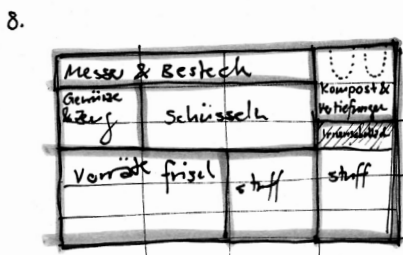 8.
Messer & Besteck
Kompost &
Vertiefungen
Gewürze
& Zeug
Schüsseln
Vorräte frisch
stuff
stuff